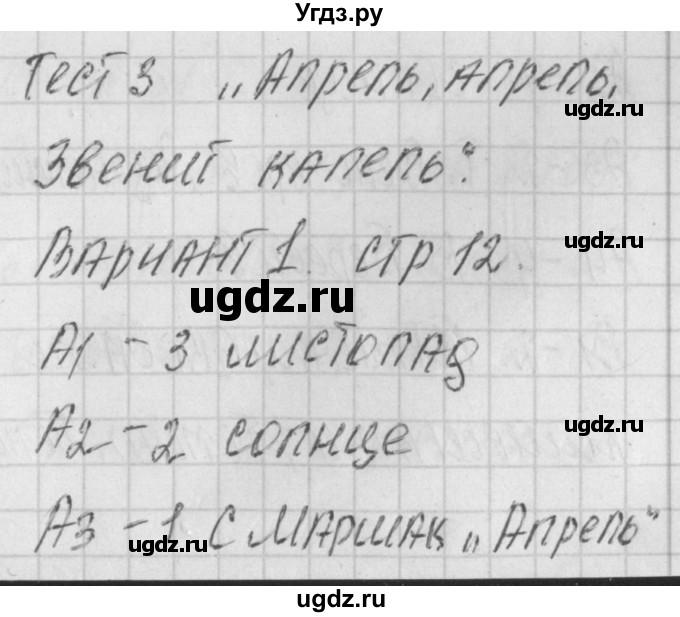 Угдз.ру
Тест 3 „Апрель, апрель,
ugdz.ru
Звенит капель“.
ugdz.ru
Вариант 1. стр 12.
ugdz.ru
А1 – 3 листопад
А2 – 2 солнце
ugdz.ru
А3 – 1 С Маршак „Апрель“
ugdz.ru
ugdz.ru